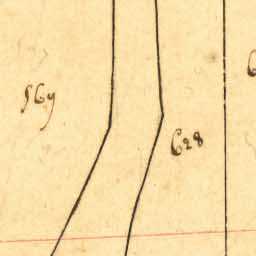 569
628
6